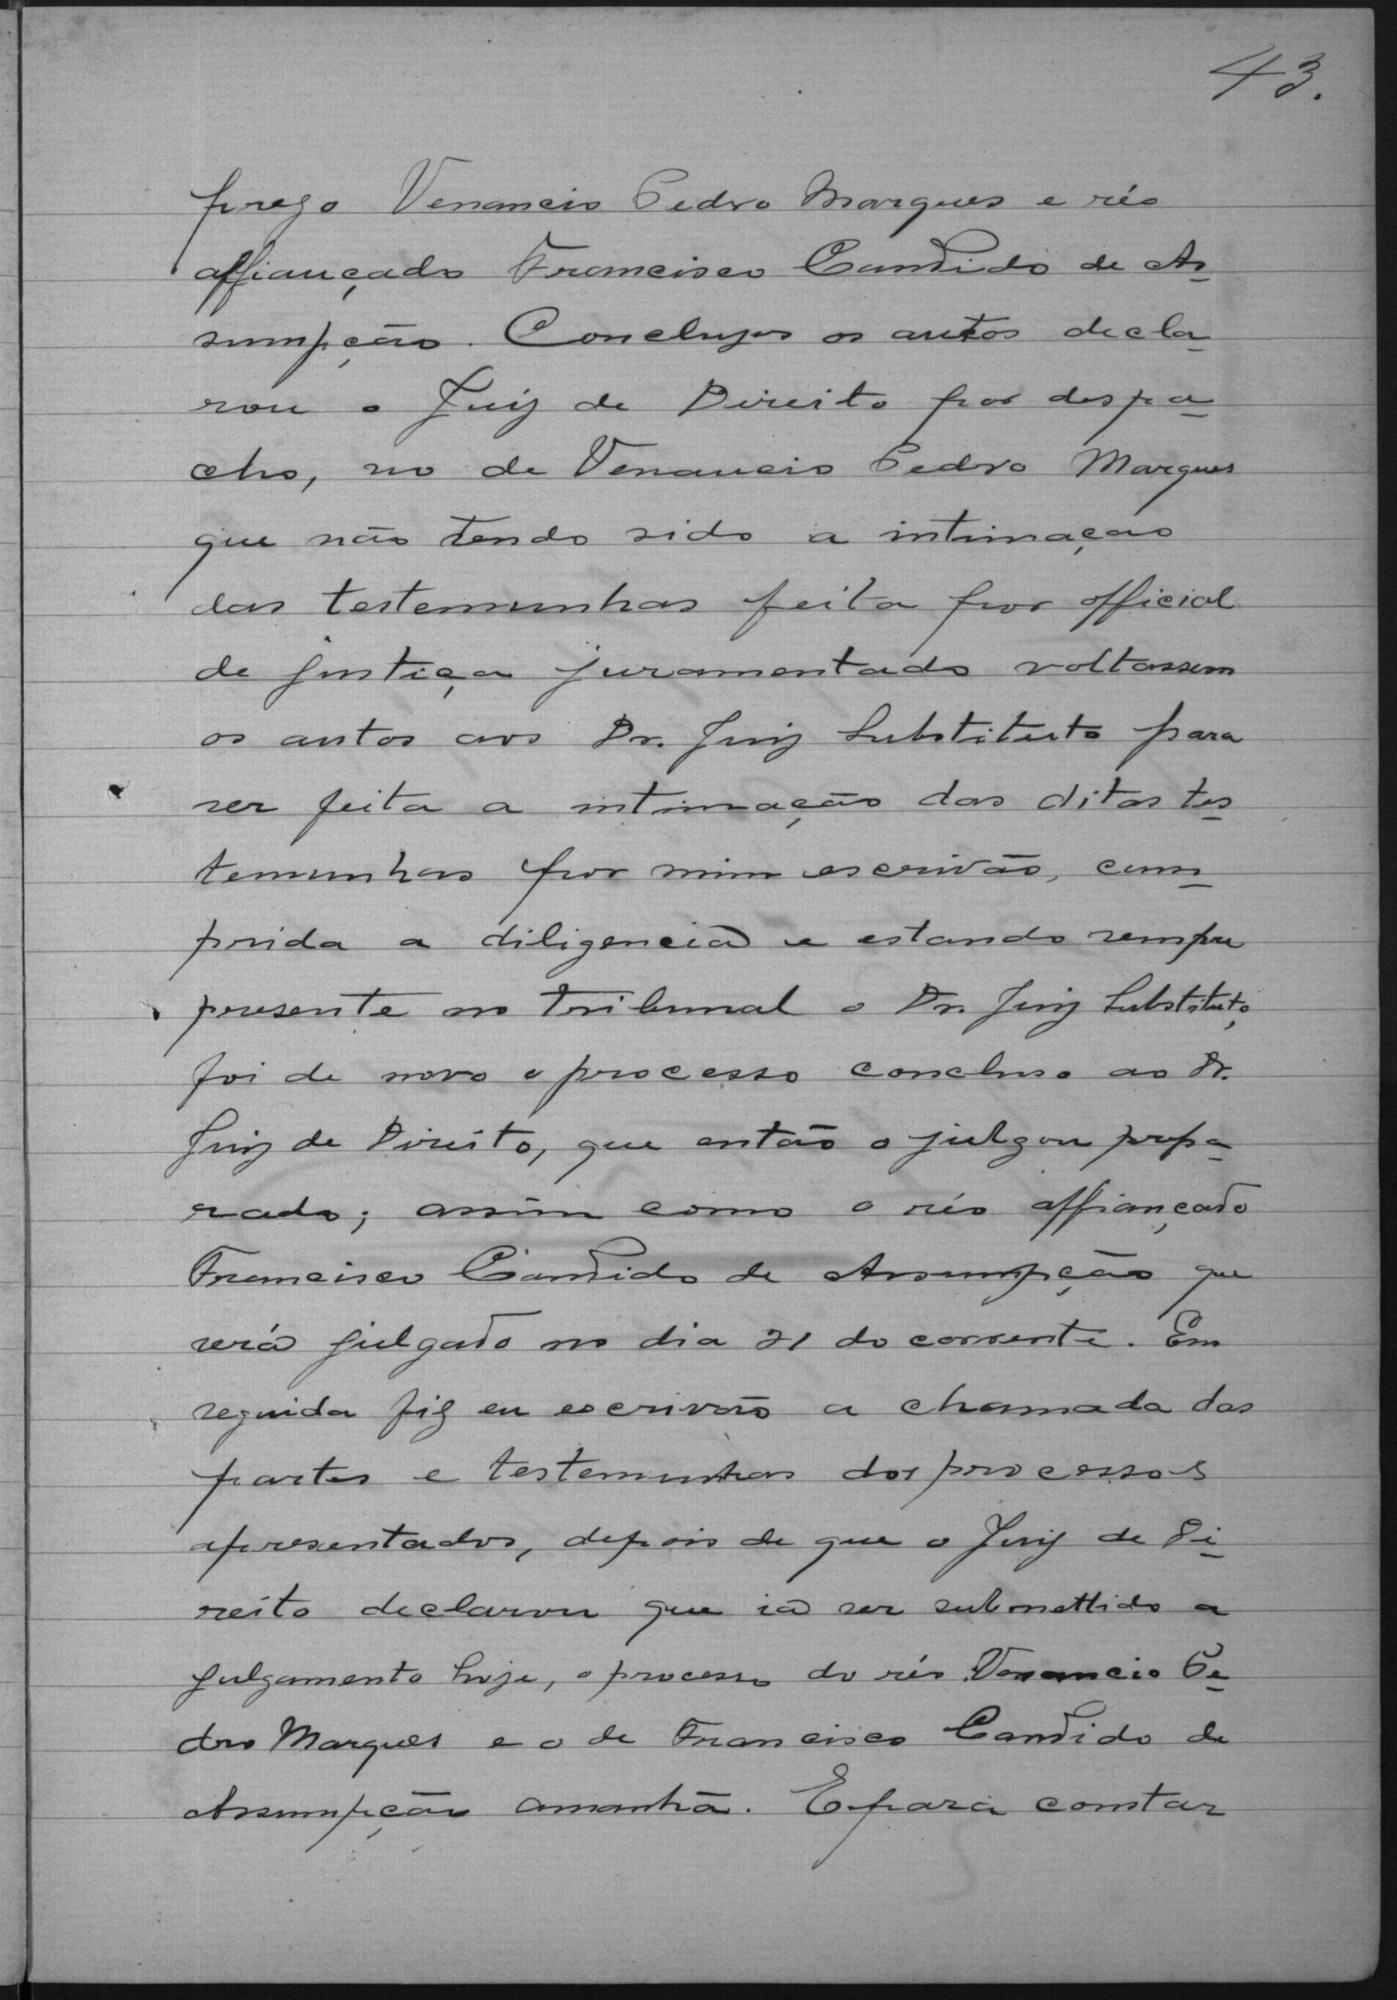 43.
prezo Venancio Pedro Marques e réo
affiançado Francisco Candido de As-
sumpção. Conclusos os autos decla-
rou o Juiz de Direito por despa-
cho, no de Venancio Pedro Marques
que não tendo sido a intimaçao
das testemunhas feita por official
de justiça juramentado voltassem
os autos aos Dr. Juiz Substituto para
ser feita a intimação das ditas tes-
temunhas por mim escrivão, cum-
prida a diligencia e estando sempre
presente no tribunal o Dr. Juiz Substituto,
foi de novo o processo concluso ao Dr.
Juiz de Direito, que então o julgou prepa-
rado; assim como o réo affiançado
Francisco Candido de Assumpção que
será julgado no dia 21 do corrente. Em
seguida fiz eu escrivão a chamada das
partes e testemunhas dos processos
apresentados, depois de que o Juiz de Di-
reito declarou que ia ser submettido a
julgamento hoje, o processo do réo Venancio Pe-
dro Marques e o de Francisco Candido de
Assumpção amanhã. E para constar